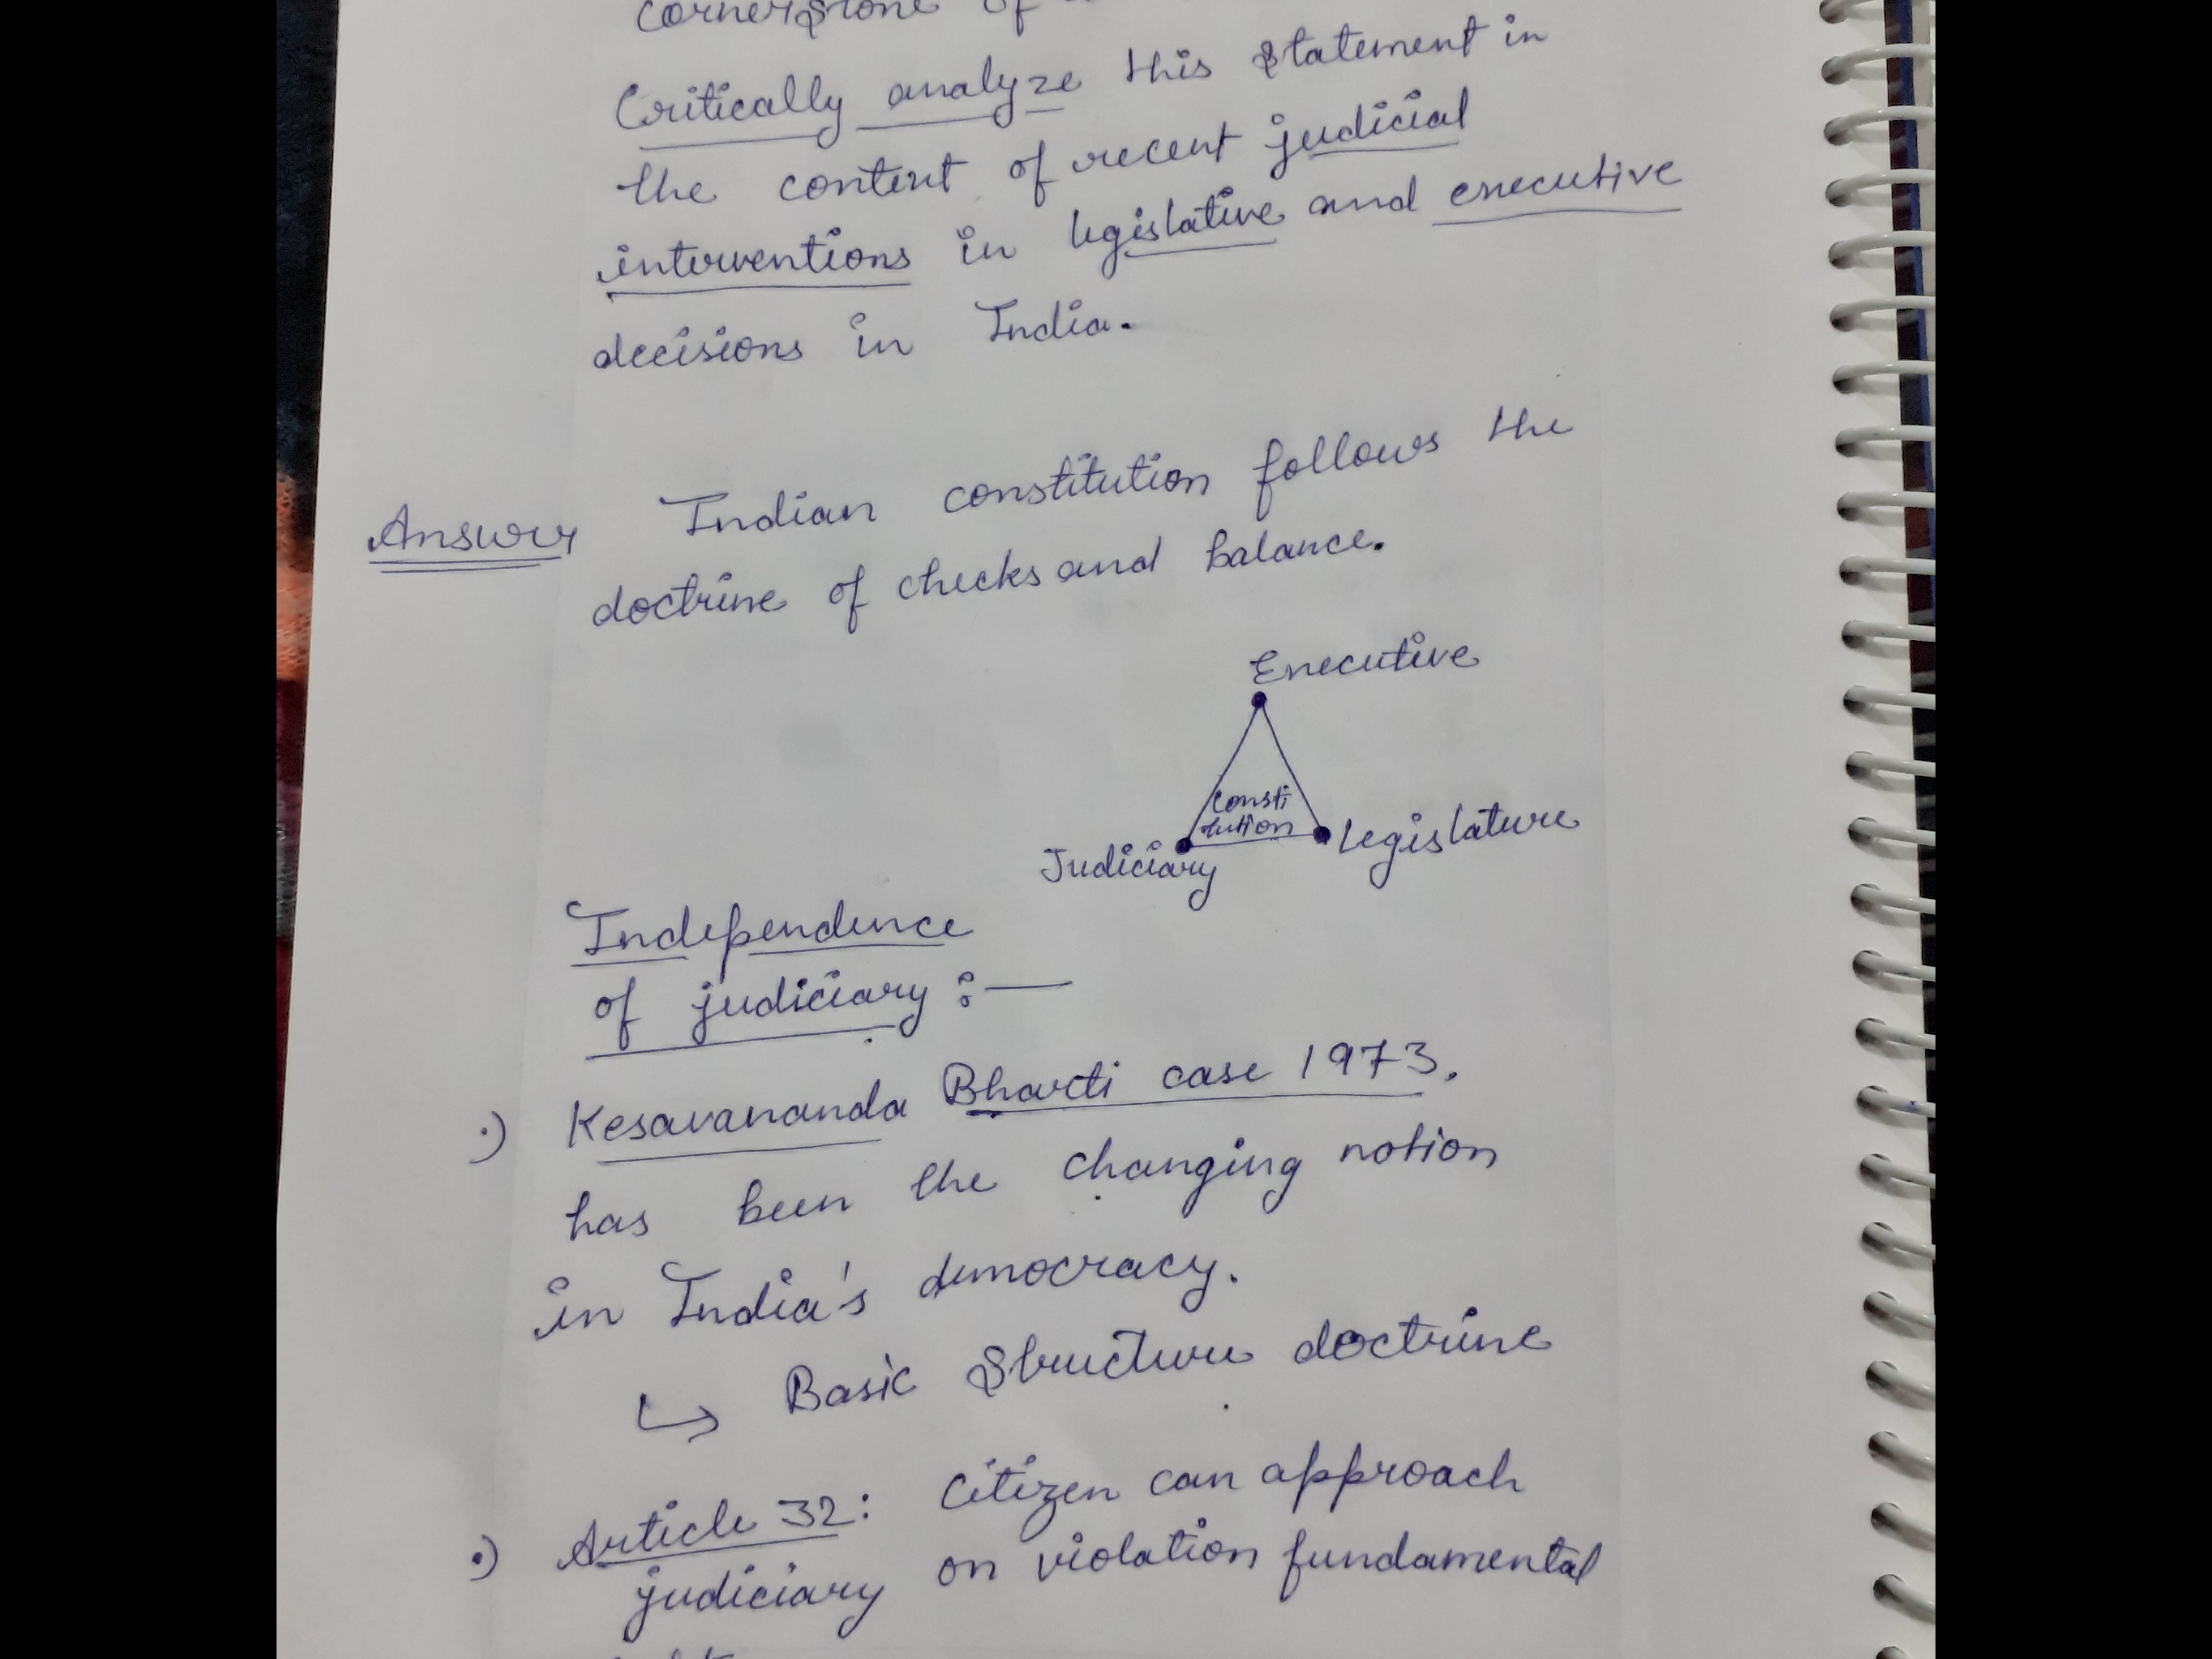 cornerstone of
Critically analyze this statement in
the context of recent judicial
interventions in legislative and executive
decisions in India.
Answer Indian constitution follows the
doctrine of checks and balance.
Executive
Consti
tution
Judiciary Legislature
Independence
of judiciary :—
•) Kesavananda Bharti case 1973.
has been the changing notion
in India's democracy.
↳ Basic Structure doctrine
•) Article 32: Citizen can approach
judiciary on violation fundamental